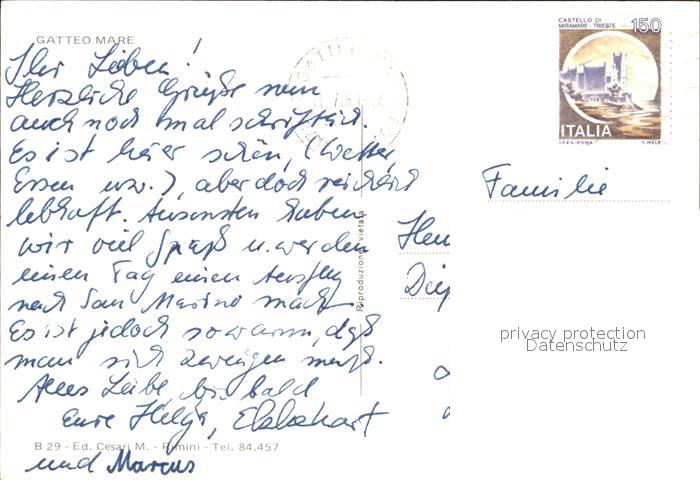 GATTEO MARE
Ihr Lieben!
Herzliche Grüße nun
auch noch mal schriftlich.
Es ist hier schön, (Wetter,
Essen usw.), aber doch reichlich
lebhaft. Ansonsten haben
wir viel Spaß u. werden
einen Tag einen Ausflug
nach San Marino mach.
Es ist jedoch so warm, daß
man sich zwingen muß.
Alles Liebe, bis bald
Eure Helga, Ekkehart
und Marcus
B 29 - Ed. Cesari M. - Rimini - Tel. 84.457
Riproduzione vietata
CASTELLO DI
MIRAMARE - TRIESTE
150
ITALIA
I.P.Z.S. - ROMA
T. MELE
Familie
privacy protection
Datenschutz